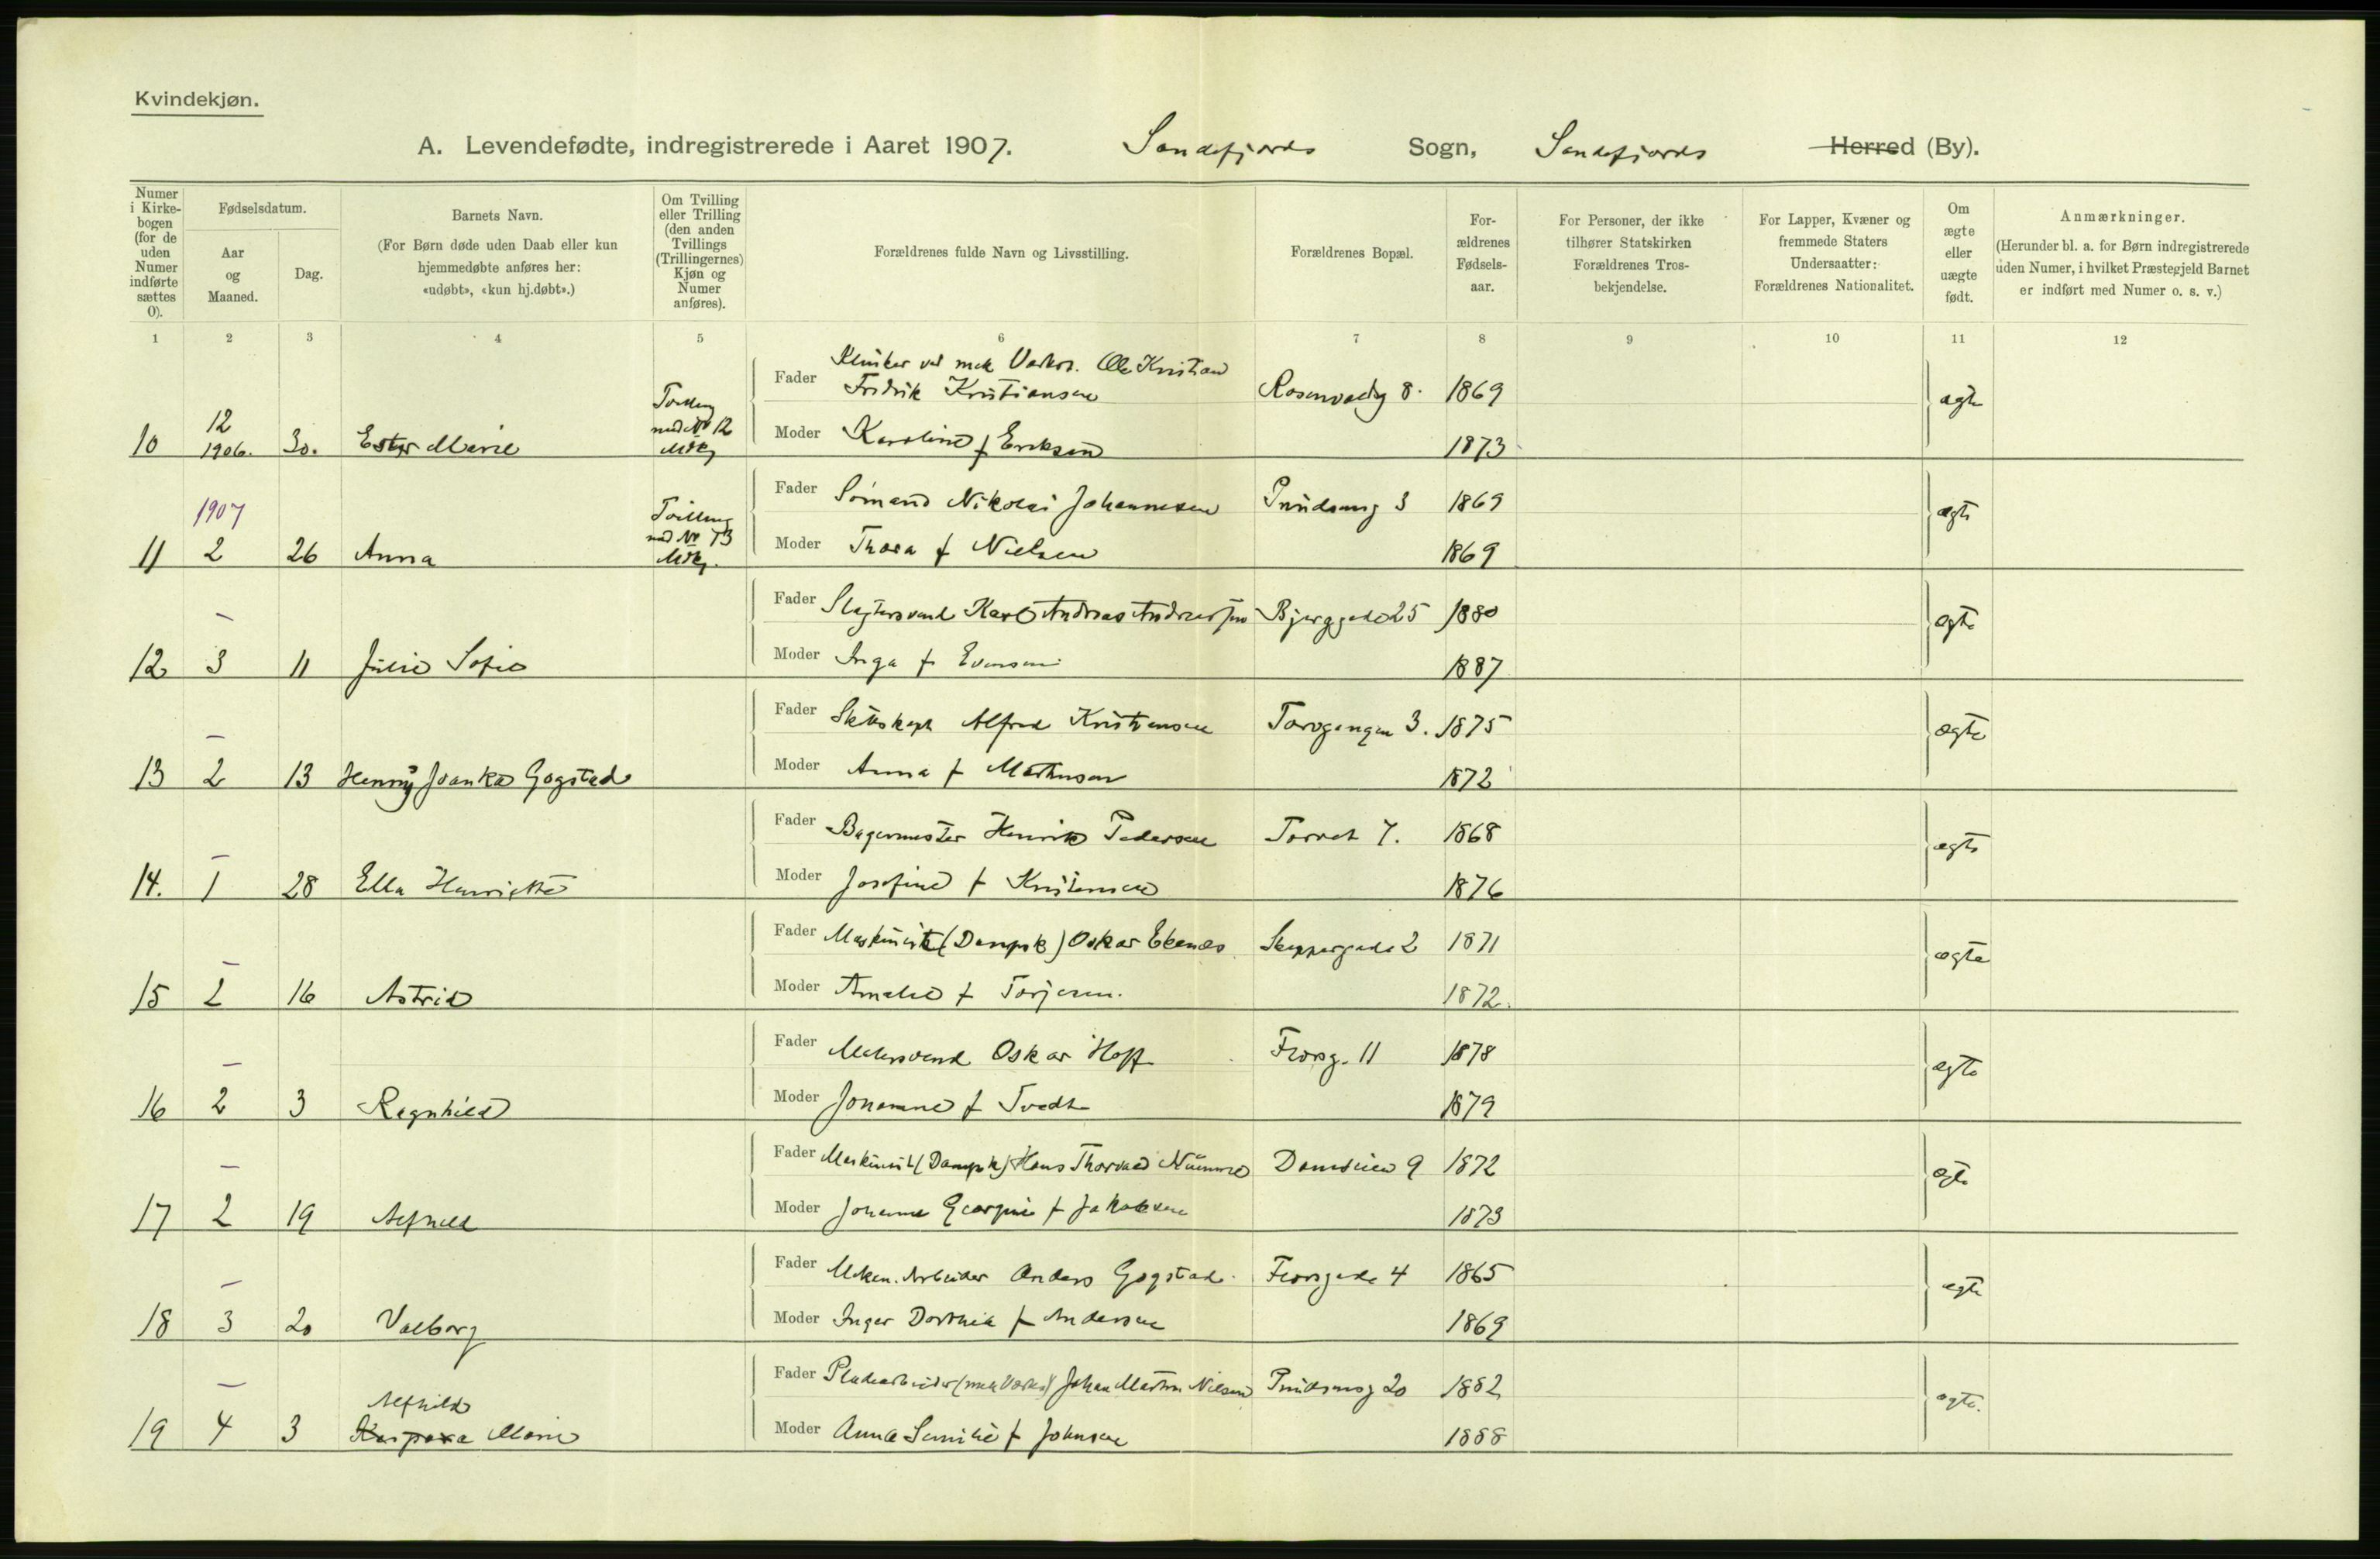 Kvindekjøn.
A. Levendefødte, indregistrerede i Aaret 1907. Sandefjords Sogn, Sandefjords Herred (By).
Numer i Kirkebogen (for de uden Numer indførte sættes 0).
Fødselsdatum.
Aar og Maaned.
Dag.
Barnets Navn.
(For Børn døde uden Daab eller kun hjemmedøbte anføres her: «udøbt», «kun hj.døbt».)
Om Tvilling eller Trilling (den anden Tvillings (Trillingernes) Kjøn og Numer anføres).
Forældrenes fulde Navn og Livsstilling.
Forældrenes Bopæl.
Forældrenes Fødselsaar.
For Personer, der ikke tilhører Statskirken Forældrenes Trosbekjendelse.
For Lapper, Kvæner og fremmede Staters Undersaatter: Forældrenes Nationalitet.
Om ægte eller uægte født.
Anmærkninger.
(Herunder bl. a. for Børn indregistrerede uden Numer, i hvilket Præstegjeld Barnet er indført med Numer o. s. v.)
1 2 3 4 5 6 7 8 9 10 11 12
Fader Klinker ved mek Verkst. Ole Kristian
Fredrik Kristiansen 8. 1869 ægte
10 12 1906. 30. Ester Marie Tvilling med No 12 Mdkj Moder Karoline f Eriksen 1873
Fader Sömand Nikolai Johannesen 3 1869 ægte
11 1907 2 26 Anna Tvilling med No 13 Mdkj. Moder Thora f Nielsen 1869
Fader Slagtersvend Karl Andreas Andreassen Bjerggade 25 1880 ægte
12 – 3 11 Julie Sofie Moder Inga f Evensen 1887
Fader Alfred Kristiansen Torvgangen 3. 1875 ægte
13 – 2 13 Henny Gogstad Moder Anna f Mathisen 1872
Fader Bagermester Henrik Pedersen Torvet 7. 1868 ægte
14. – 1 28 Ella Henriette Moder Josefine f Kristensen 1876
Fader Maskinist (Dampsk) Oskar Ekenæs Skippergade 2 1871 ægte
15 – 2 16 Astrid Moder Amalie f Torjesen. 1872.
Fader Malersvend Oskar Hoff 11 1878 ægte
16 – 2 3 Ragnhild Moder Johanne f Tvedt 1879
Fader Maskinist (Dampsk) Hans Thorvald 9 1872 ægte
17 – 2 19 Alfhild Moder Johanne Georgine f Jakobsen 1873
Fader Mekan. Arbeider Anders Gogstad 4 1865 ægte
18 – 3 20 Valborg Moder Inger Dorthea f Andersen 1869
Fader Pladearbeider (mek Værkst) Johan Martin Nilsen 20 1882 ægte.
Alfhild
19 – 4 3 Kaspara Marie Moder Anna f Johnsen 1888